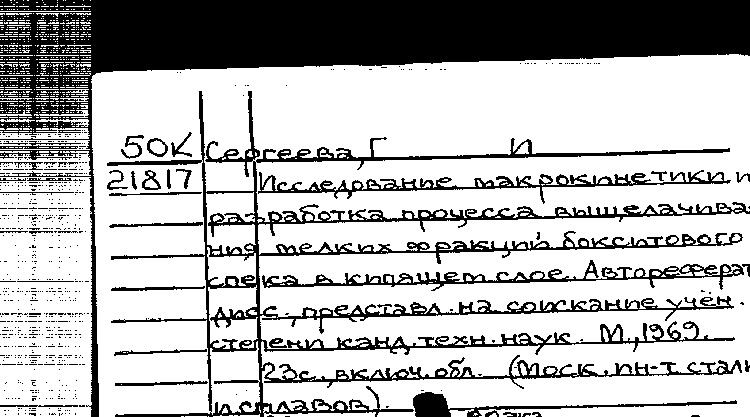 50К Сергеева, Г И
21817 Исследование макрокинетики и
разработка процесса выщелачива-
ния мелких фракций бокситового
спека в кипящем слое. Автореферат
дисс., представл. на соискание учён.
степени канд. техн. наук. М., 1969.
23с., включ. обл. (Моск. ин-т стали
и сплавов).